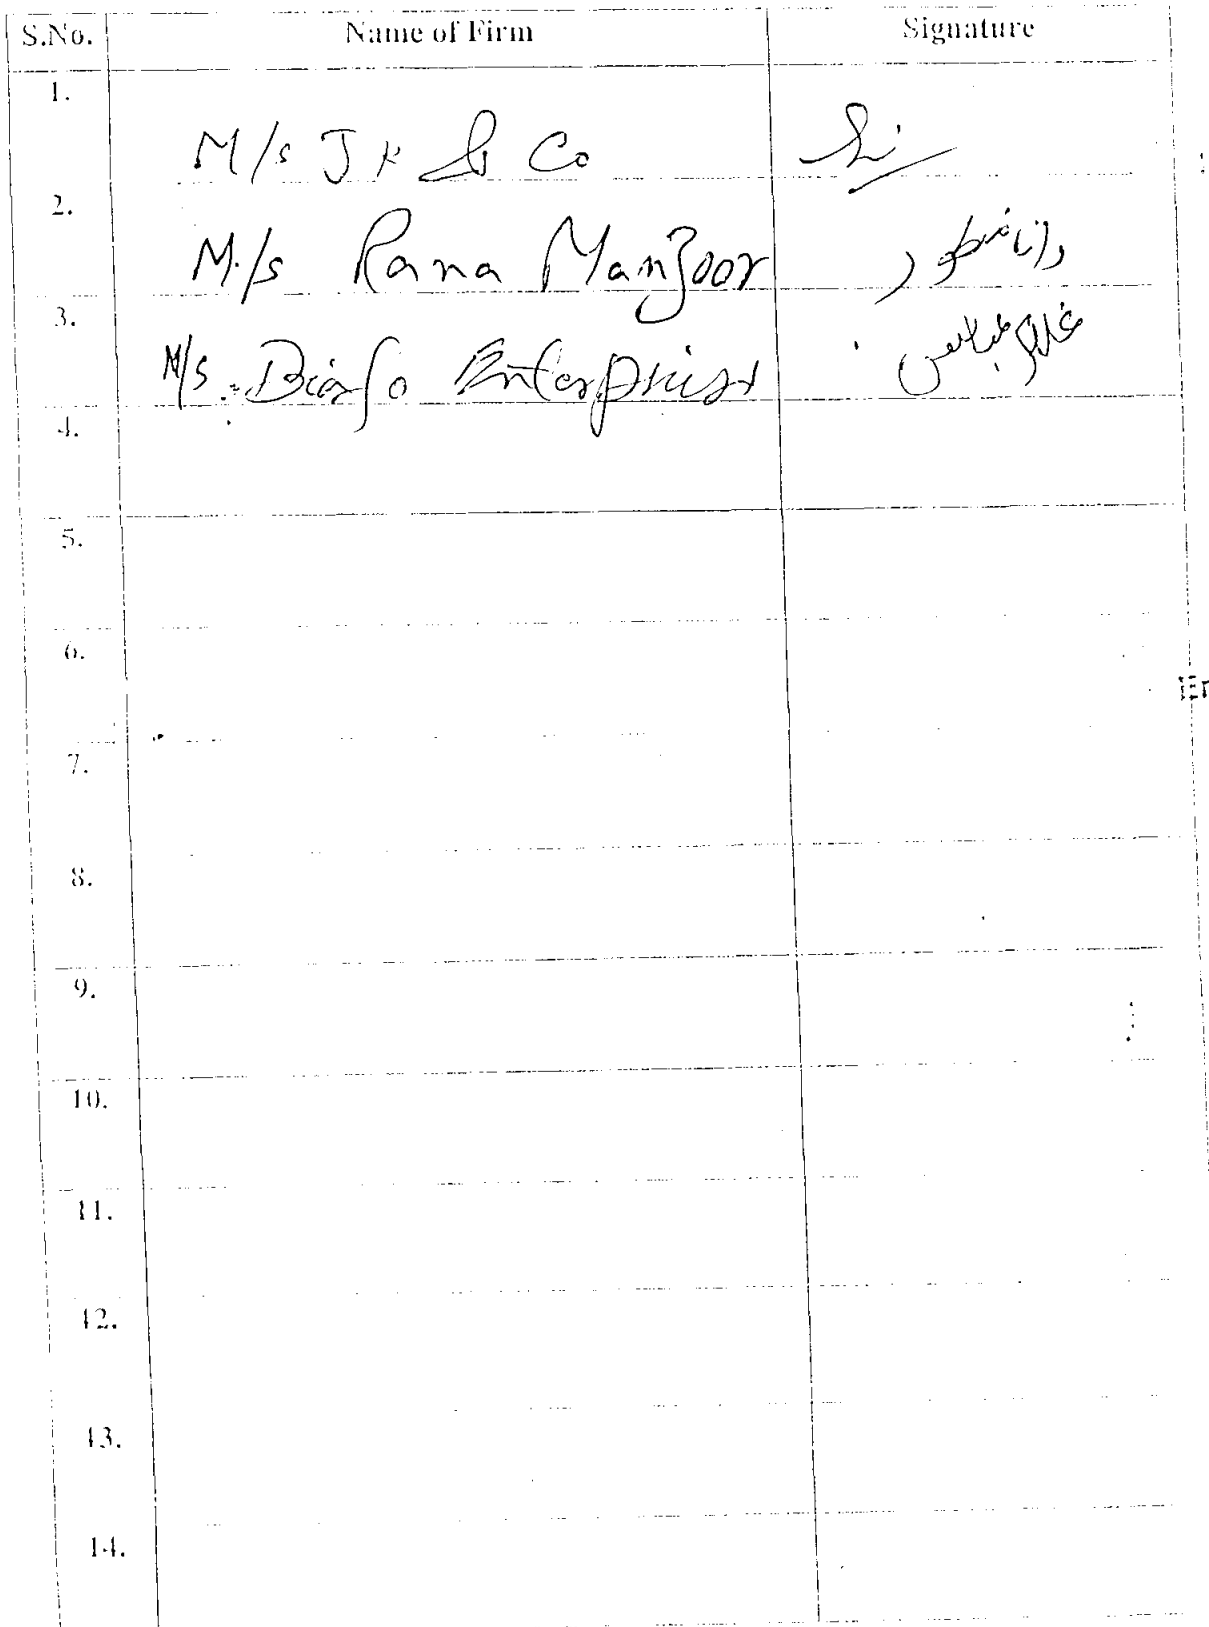 S.No. Name of Firm Signature
1. M/s J K & Co
2. M/s Rana Manzoor رانا منظور
3. M/s. Enterpriser غلام عباس
4.
5.
6.
7.
8.
9.
10.
11.
12.
13.
14.